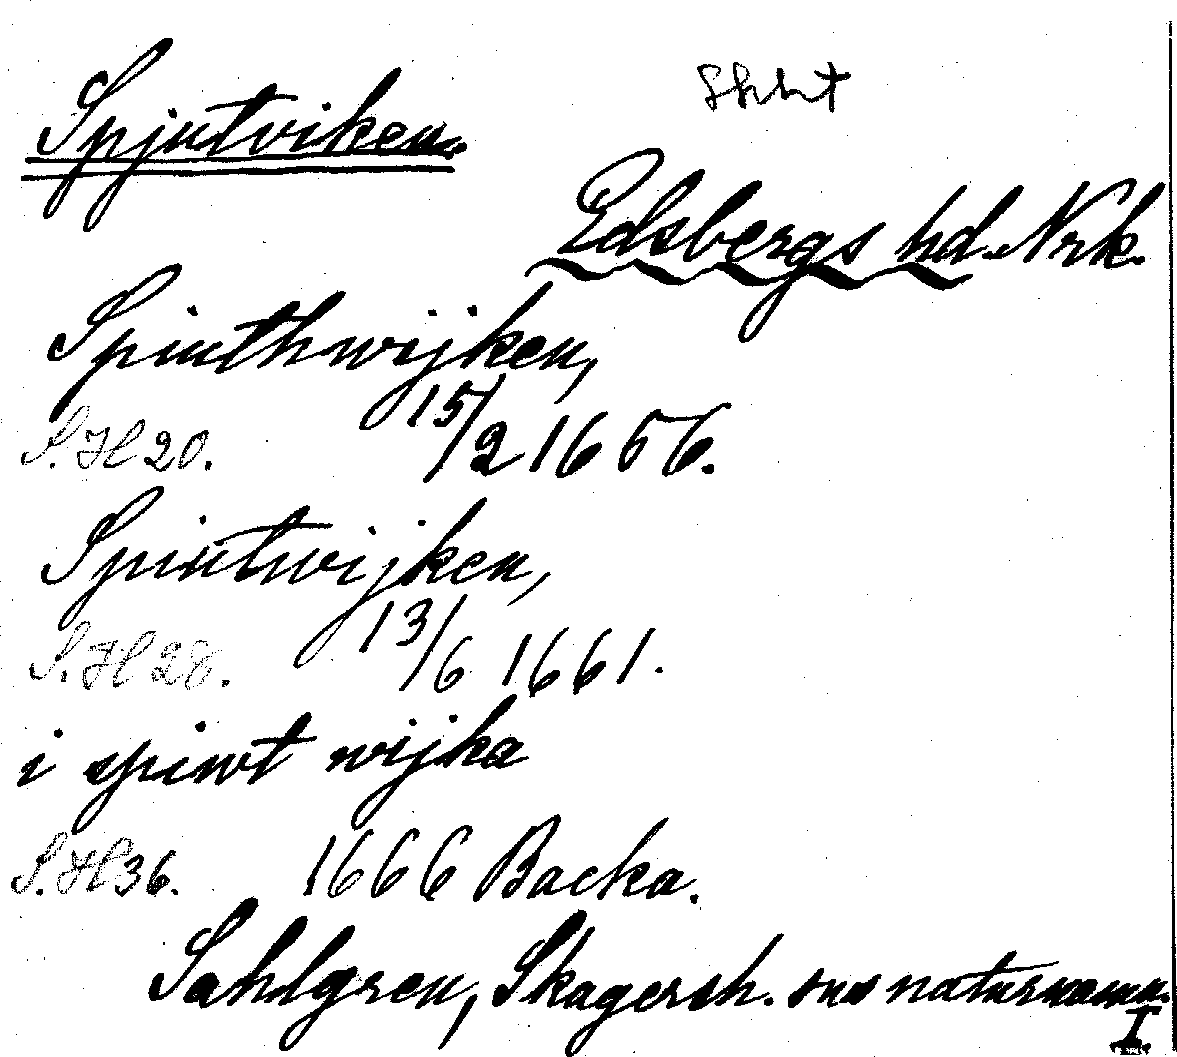 Spjutviken.
Skht
Edsbergs hd. Nrk.
Spiuthwijken,
S.H 20. 15/2 1656.
Spiutwijken,
S.H 28. 13/6 1661.
i spiwt wijka
S.H 36. 1666 Backa.
Sahlgren, Skagersh. sns naturnamn.
I.